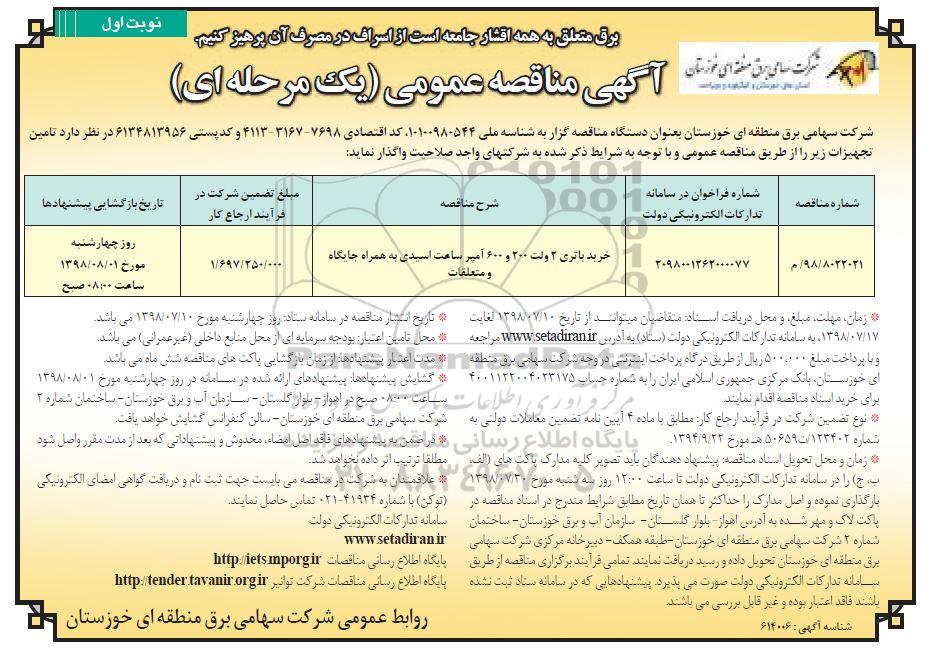 نوبت اول
برق متعلق به همه اقشار جامعه است از اسراف در مصرف آن پرهیز کنیم.
شرکت سهامی برق منطقه ای خوزستان
آگهی مناقصه عمومی (یک مرحله ای)
شرکت سهامی برق منطقه ای خوزستان بعنوان دستگاه مناقصه گزار به شناسه ملی ۱۰۱۰۰۹۸۰۵۴۴، کد اقتصادی ۷۶۹۸-۳۱۶۷-۴۱۱۳ و کدپستی ۶۱۳۴۸۱۳۹۵۶ در نظر دارد تامین
تجهیزات زیر را از طریق مناقصه عمومی و با توجه به شرایط ذکر شده به شرکتهای واجد صلاحیت واگذار نماید:
شماره مناقصه
شماره فراخوان در سامانه تدارکات الکترونیکی دولت
شرح مناقصه
مبلغ تضمین شرکت در فرآیند ارجاع کار
تاریخ بازگشایی پیشنهادها
۹۸/۸۰۲۲۰۲۱/ م
۲۰۹۸۰۰۱۲۶۲۰۰۰۰۷۷
خرید باتری ۲ ولت ۲۰۰ و ۶۰۰ آمپر ساعت اسیدی به همراه جایگاه
و متعلقات
۱/۶۹۷/۲۵۰/۰۰۰
روز چهارشنبه
مورخ ۱۳۹۸/۰۸/۰۱
ساعت ۰۸:۰۰ صبح
* زمان، مهلت، مبلغ، و محل دریافت اسناد: متقاضیان میتوانند از تاریخ ۱۳۹۸/۰۷/۱۰ لغایت
۱۳۹۸/۰۷/۱۷، به سامانه تدارکات الکترونیکی دولت (ستاد) به آدرس www.setadiran.ir مراجعه
و با پرداخت مبلغ ۵۰۰,۰۰۰ ریال از طریق درگاه پرداخت اینترنتی در وجه شرکت سهامی برق منطقه
ای خوزستان، بانک مرکزی جمهوری اسلامی ایران را به شماره حساب ۴۰۰۱۱۲۲۰۰۴۰۲۳۱۷۵
برای خرید اسناد مناقصه اقدام نمایند.
* نوع تضمین شرکت در فرآیند ارجاع کار: مطابق با ماده ۴ آیین نامه تضمین معاملات دولتی به
شماره ۱۲۳۴۰۲/ت۵۰۶۵۹ هـ مورخ ۱۳۹۴/۹/۲۲.
* زمان و محل تحویل اسناد مناقصه: پیشنهاد دهندگان باید تصویر کلیه مدارک پاکت های (الف،
ب، ج) را در سامانه تدارکات الکترونیکی دولت تا ساعت ۱۲:۰۰ روز سه شنبه مورخ ۱۳۹۸/۰۷/۳۰
بارگذاری نموده و اصل مدارک را حداکثر تا همان تاریخ مطابق شرایط مندرج در اسناد مناقصه در
پاکت لاک و مهر شده به آدرس اهواز- بلوار گلستان- سازمان آب و برق خوزستان- ساختمان
شماره ۲ شرکت سهامی برق منطقه ای خوزستان-طبقه همکف- دبیرخانه مرکزی شرکت سهامی
برق منطقه ای خوزستان تحویل داده و رسید دریافت نمایند. تمامی فرآیند برگزاری مناقصه از طریق
سامانه تدارکات الکترونیکی دولت صورت می پذیرد. پیشنهادهایی که در سامانه ستاد ثبت نشده
باشند فاقد اعتبار بوده و غیر قابل بررسی می باشند.
* تاریخ انتشار مناقصه در سامانه ستاد: روز چهارشنبه مورخ ۱۳۹۸/۰۷/۱۰ می باشد.
* محل تامین اعتبار: بودجه سرمایه ای از محل منابع داخلی (غیرعمرانی) می باشد.
* مدت اعتبار پیشنهادها: از زمان بازگشایی پاکت های مناقصه شش ماه می باشد.
* گشایش پیشنهادها: پیشنهادهای ارائه شده در سامانه در روز چهارشنبه مورخ ۱۳۹۸/۰۸/۰۱
ساعت ۰۸:۰۰ صبح در اهواز- بلوار گلستان- سازمان آب و برق خوزستان- ساختمان شماره ۲
شرکت سهامی برق منطقه ای خوزستان- سالن کنفرانس گشایش خواهد یافت.
* در ضمن به پیشنهادهای فاقد اصل امضاء، مخدوش و پیشنهاداتی که بعد از مدت مقرر واصل شود
مطلقا ترتیب اثر داده نخواهد شد.
* علاقمندان به شرکت در مناقصه می بایست جهت ثبت نام و دریافت گواهی امضای الکترونیکی
(توکن) با شماره ۴۱۹۳۴-۰۲۱ تماس حاصل نمایند.
سامانه تدارکات الکترونیکی دولت
www.setadiran.ir
پایگاه اطلاع رسانی مناقصات http://iets.mporg.ir
پایگاه اطلاع رسانی مناقصات شرکت توانیر http://tender.tavanir.org.ir
شناسه آگهی : ۶۱۴۰۰۶
روابط عمومی شرکت سهامی برق منطقه ای خوزستان